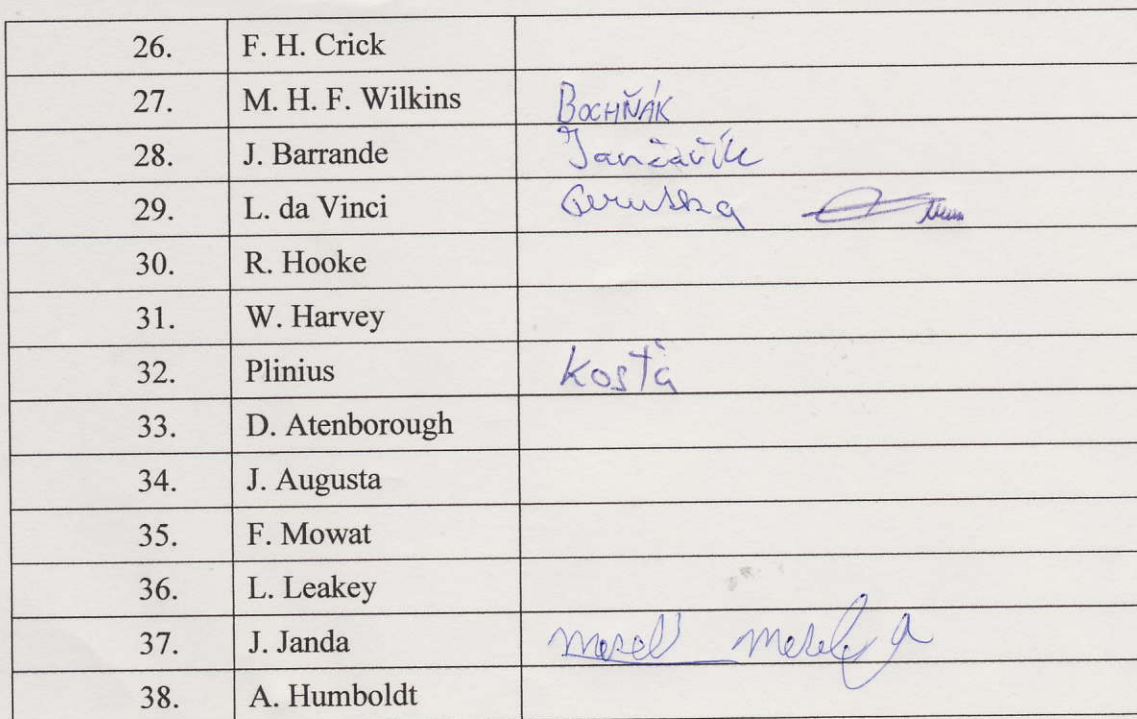 26. F. H. Crick
27. M. H. F. Wilkins BOCHŇÁK
28. J. Barrande Jančařík
29. L. da Vinci
30. R. Hooke
31. W. Harvey
32. Plinius Kosťa
33. D. Atenborough
34. J. Augusta
35. F. Mowat
36. L. Leakey
37. J. Janda
38. A. Humboldt